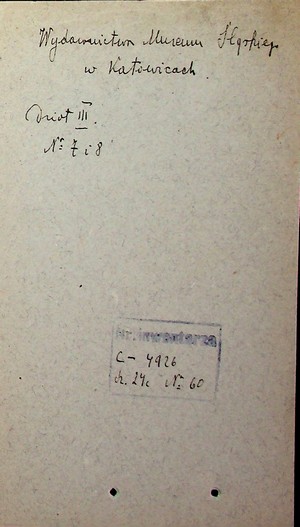 Wydawnictwa Muzeum Śląskiego
w Katowicach.
Dział III.
Nr 7 i 8
Nr. inwentarza
C- 4926
sz. 24c Nr 60